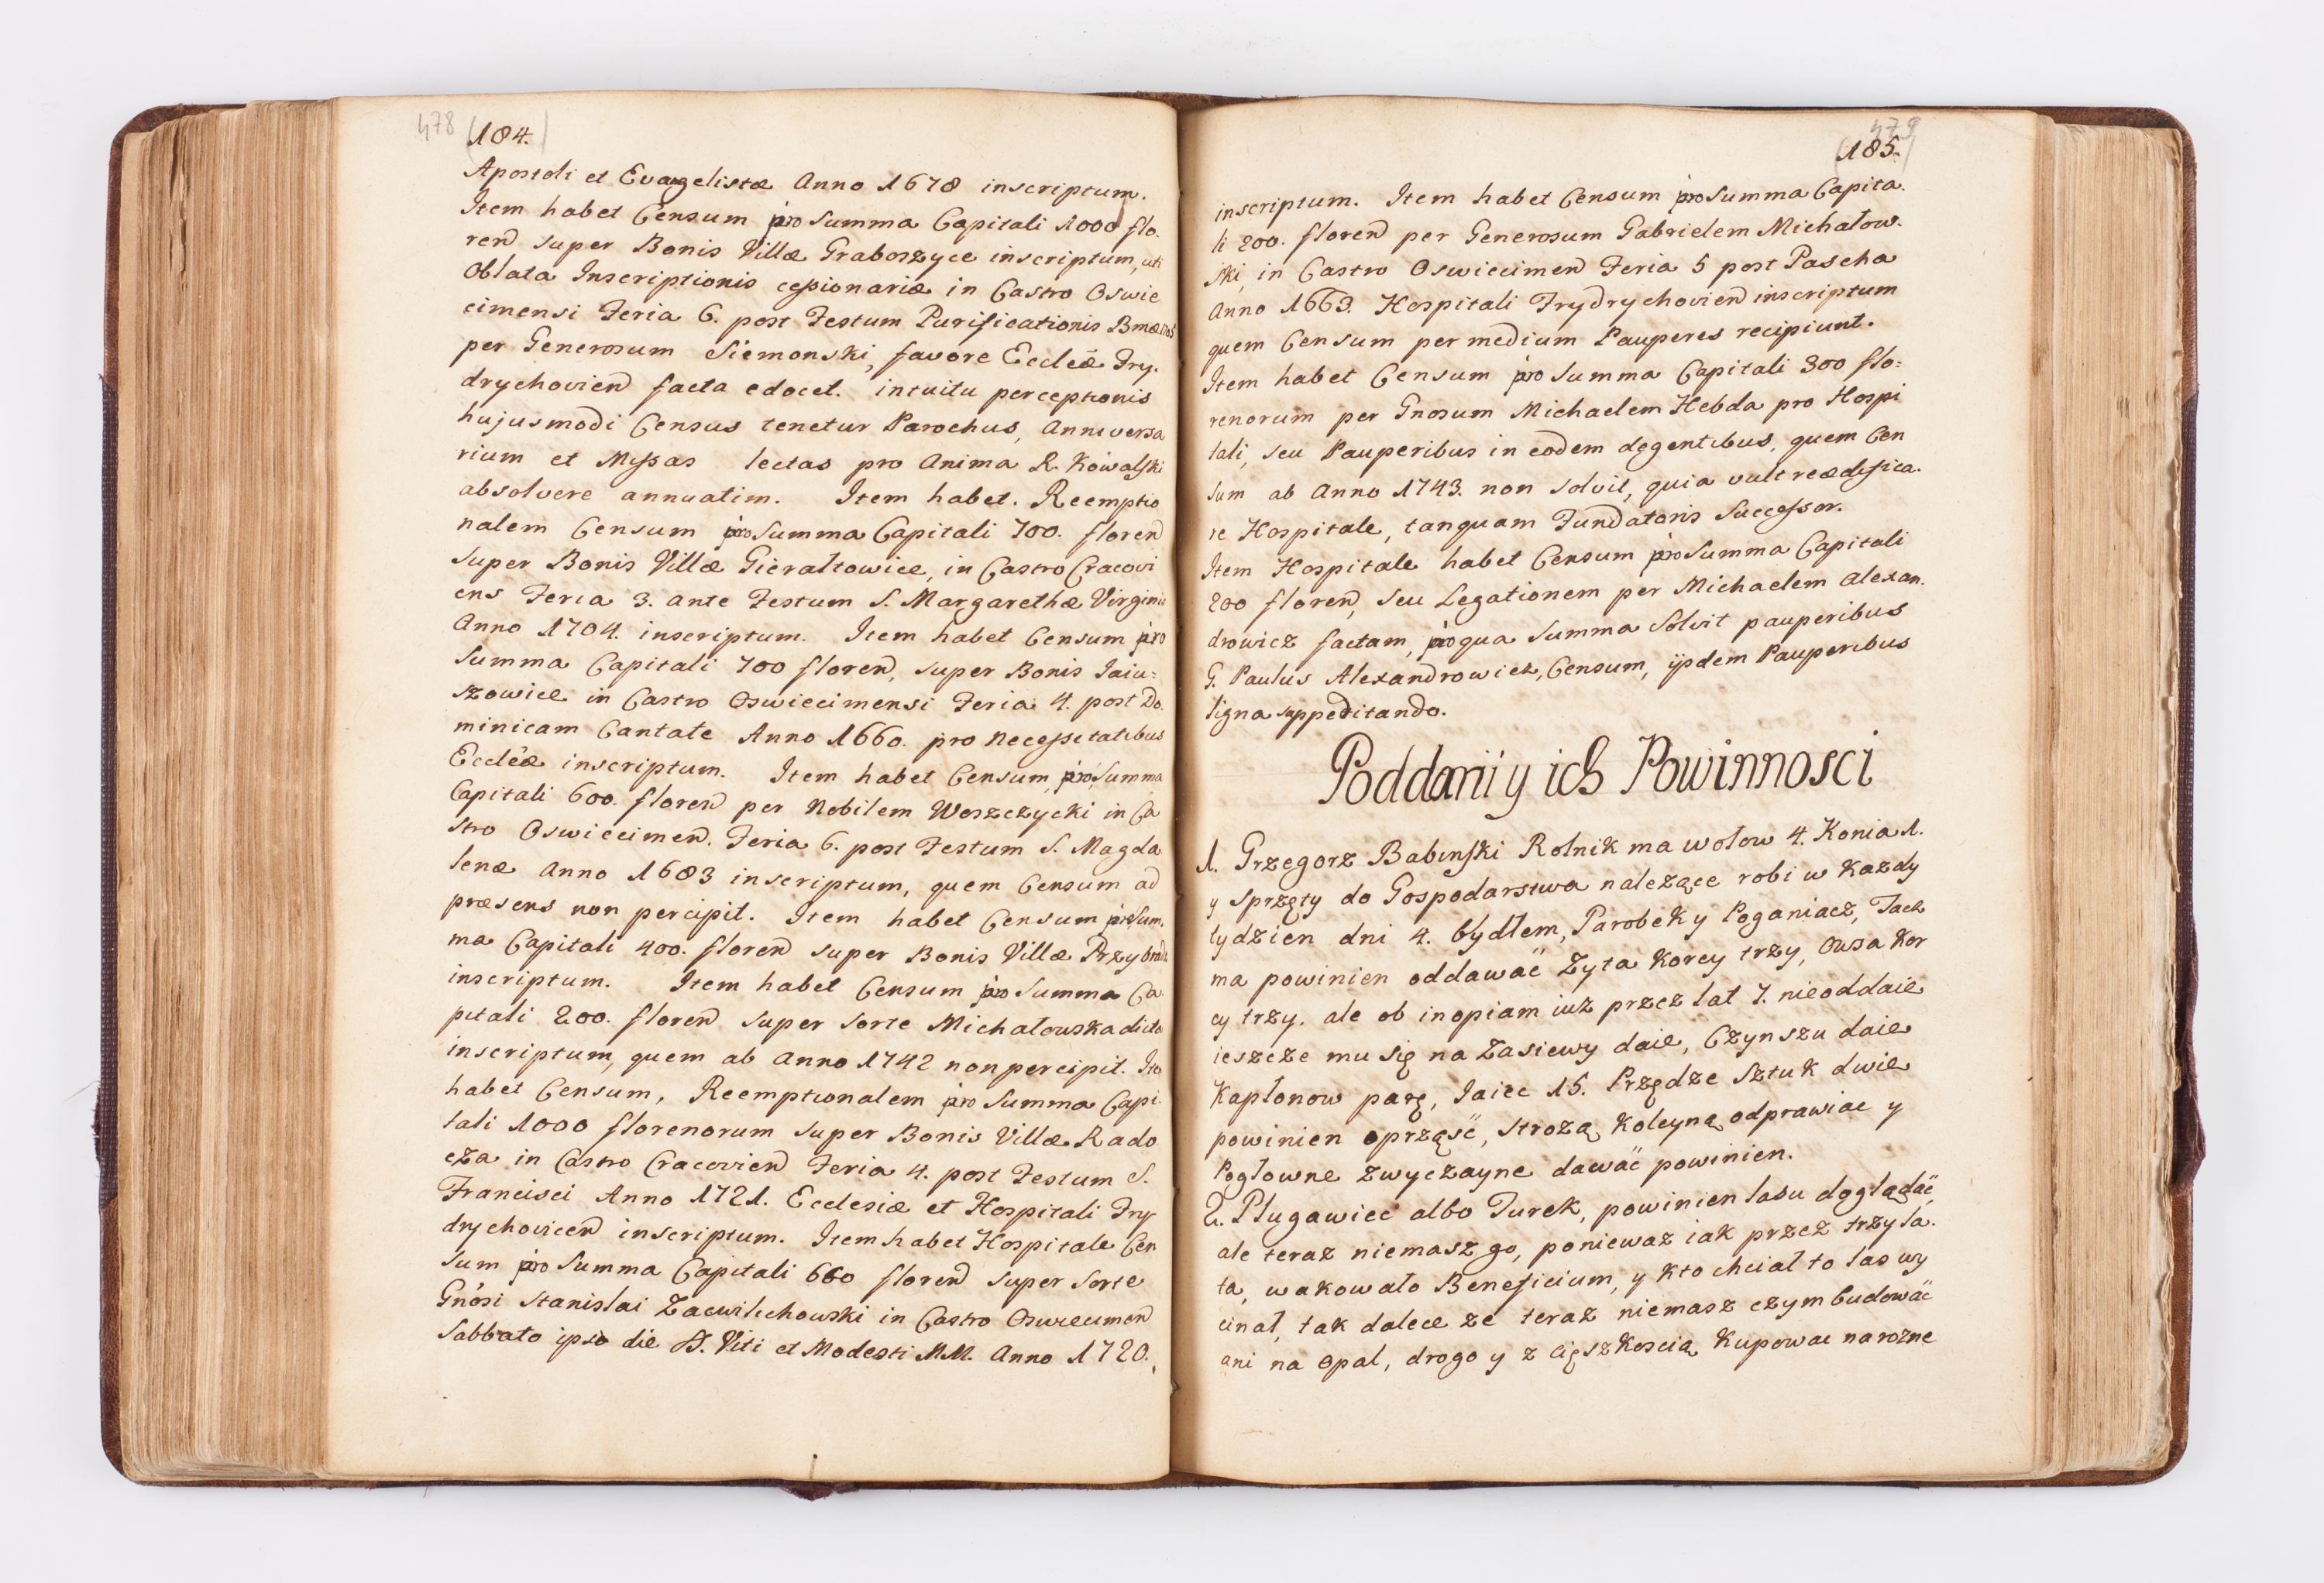 478 184.
Apostoli et Evangelistæ Anno 1678 inscriptum.
Item habet Censum pro Summa Capitali 1000 flo.
ren super Bonis Villæ Graboszyce inscriptum, uti
Oblata Inscriptionis cessionariæ in Castro Oswie
cimensi Feria 6. post Festum Purificationis
per Generosum Siemonski, favore Eccleæ Fry.
drychovien facta edocet. intuitu perceptionis
hujusmodi Census tenetur Parochus, Anniversa
rium et Missas lectas pro Anima R. Kowalski
absolvere annuatim. Item habet. Reemptio
nalem Censum pro Summa Capitali 700. floren
super Bonis Villæ Gierałtowice, in Castro Cracovi
ens Feria 3. ante Festum S. Margarethæ Virginis
Anno 1704. inscriptum. Item habet Censum pro
Summa Capitali 700 floren, super Bonis Jaiu=
szowice in Castro Oswiecimensi Feria 4. post Do.
minicam Cantate Anno 1660. pro necessitatibus
Eccleæ inscriptum. Item habet Censum, pro Summa
Capitali 600. floren per Nobilem Woszczycki in Ca
stro Oswiecimen. Feria 6. post Festum S. Magda
lenæ Anno 1683 inscriptum, quem Censum ad
præsens non percipit. Item habet Censum pro Sum.
ma Capitali 400. floren super Bonis Villæ
inscriptum. Item habet Censum pro Summa Ca
pitali 200. floren super sorte Michałowska dicta
inscriptum, quem ab Anno 1742 non percipit. Ite
habet Censum, Reemptionalem pro Summa Capi
tali 1000 florenorum super Bonis Villæ Rado
cza in Castro Cracovien Feria 4. post Festum S.
Francisci Anno 1721. Ecclesiæ et Hospitali Fry
drychovicen inscriptum. Item habet Hospitale Cen
sum pro Summa Capitali 660 floren super Sorte
Gnosi Stanislai Zacwilichowski in Castro Oswiecimen
Sabbato ipso die SS. Viti et Modesti MM. Anno 1720.
479
185.
inscriptum. Item habet Censum pro Summa Capita.
li 200. floren per Generosum Gabrielem Michałow.
ski, in Castro Oswiecimen Feria 5 post Pascha
Anno 1663. Hospitali Frydrychovien inscriptum
quem Censum per medium Pauperes recipiunt.
Item habet Censum pro Summa Capitali 300 flo=
renorum per Gnosum Michaelem Hebda pro Hospi
tali, seu Pauperibus in eodem degentibus, quem Cen
sum ab Anno 1743. non solvit, quia vult reædifica.
re Hospitale, tanquam Fundatoris Successor.
Item Hospitale habet Censum pro Summa Capitali
200 floren, seu Legationem per Michaelem Alexan.
drowicz factam, pro qua Summa Solvit pauperibus
G. Paulus Alexandrowicz, Censum, ijsdem Pauperibus
ligna suppeditando.
Poddani y ich Powinnosci
1. Grzegorz Babinski Rolnik ma wołow 4. Konia 1.
y sprzęty do Gospodarstwa nalezące robi w Kazdy
tydzien dni 4. bydłem, Parobek y Poganiacz, Tack
ma powinien oddawać Zyta Korcy trzy, Owsa Kor
cy trzy. ale ob inopiam iuż przez lat 7. nieoddaie
ieszcze mu się na Zasiewy daie, Czynszu daie
Kapłonow parę, Jaiec 15. Przędze Sztuk dwie
powinien oprząść, Strozą Koleyną odprawiac y
Pogłowne Zwyczayne dawać powinien.
2. Pługawiec albo Turek, powinien lasu doglądać,
ale teraz niemasz go, poniewaz iak przez trzy la.
ta, wakowało Beneficium, y kto chciał to las wy
cinał, tak dalece ze teraz niemasz czym budować
ani na Opał, drogo y z cięszkoscią Kupowac na rozne